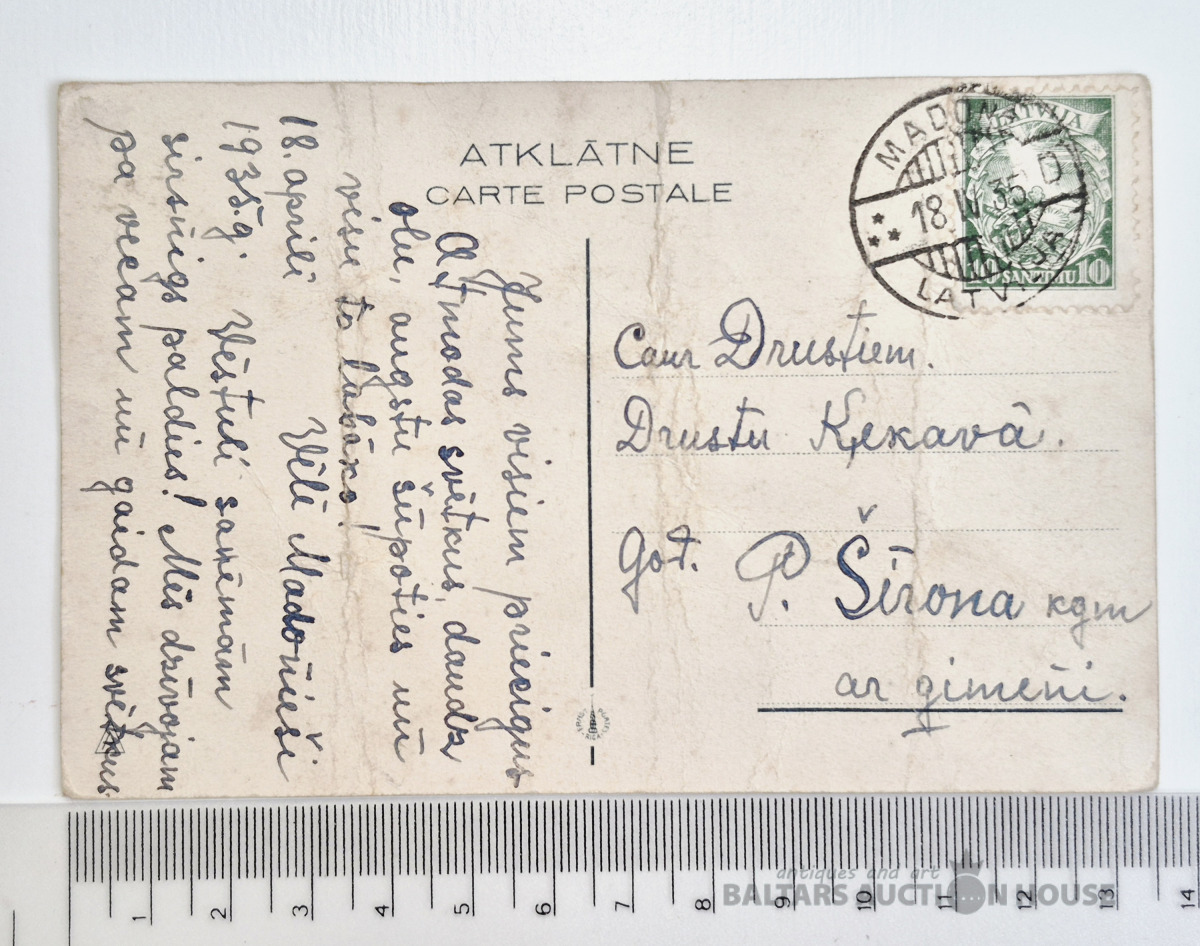 ATKLĀTNE
CARTE POSTALE
MADONA
LATVIJA
18.IV.35
D
LATVIJA
10 SANTIMU 10
Jums visiem priecigus
Atmodas svētkus, daudz
olu, augstu šūpoties un̄
visu to labāko!
Vēlī Madonieši
18. aprilī
1935.g. Vēstuli saņēmām
sirsnīgs paldies! Mēs dzīvojam
pa vecam un̄ gaidam svētkus.
Caur Drustiem.
Drustu Ķekavā.
God.
P. Šīrona kgm
ar ģimeni.
1 2 3 4 5 6 7 8 9 10 11 12 13 14
antiques and art
BALTARS AUCTION HOUSE